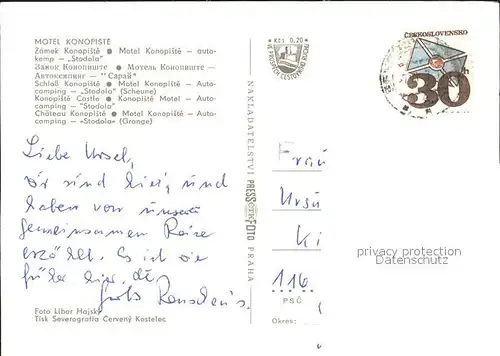 MOTEL KONOPIŠTĚ
Zámek Konopiště ● Motel Konopiště – auto-
kemp – "Stodola"
Замок Конопиште ● Мотель Конопиште –
Автокемпинг – "Сарай"
Schloß Konopiště ● Motel Konopiště – Auto-
camping – "Stodola" (Scheune)
Konopiště Castle ● Konopiště Motel – Auto-
camping – "Stodola"
Château Konopiště ● Motel Konopiště – Auto-
camping – «Stodola» (Grange)
Liebe Ursel,
wir sind hier, und
haben von unserer
gemeinsamen Reise
erzählt. Es ist wie
früher hier.
Foto Libor Hajský
Tisk Severografia Červený Kostelec
NAKLADATELSTVÍ PRESSFOTO PRAHA
Kčs 0,20
VE PROSPĚCH CESTOVNÍHO RUCHU
ČESKOSLOVENSKO
30h
Fräu
Ursu
Ki
116
PSČ
Okres:
privacy protection
Datenschutz